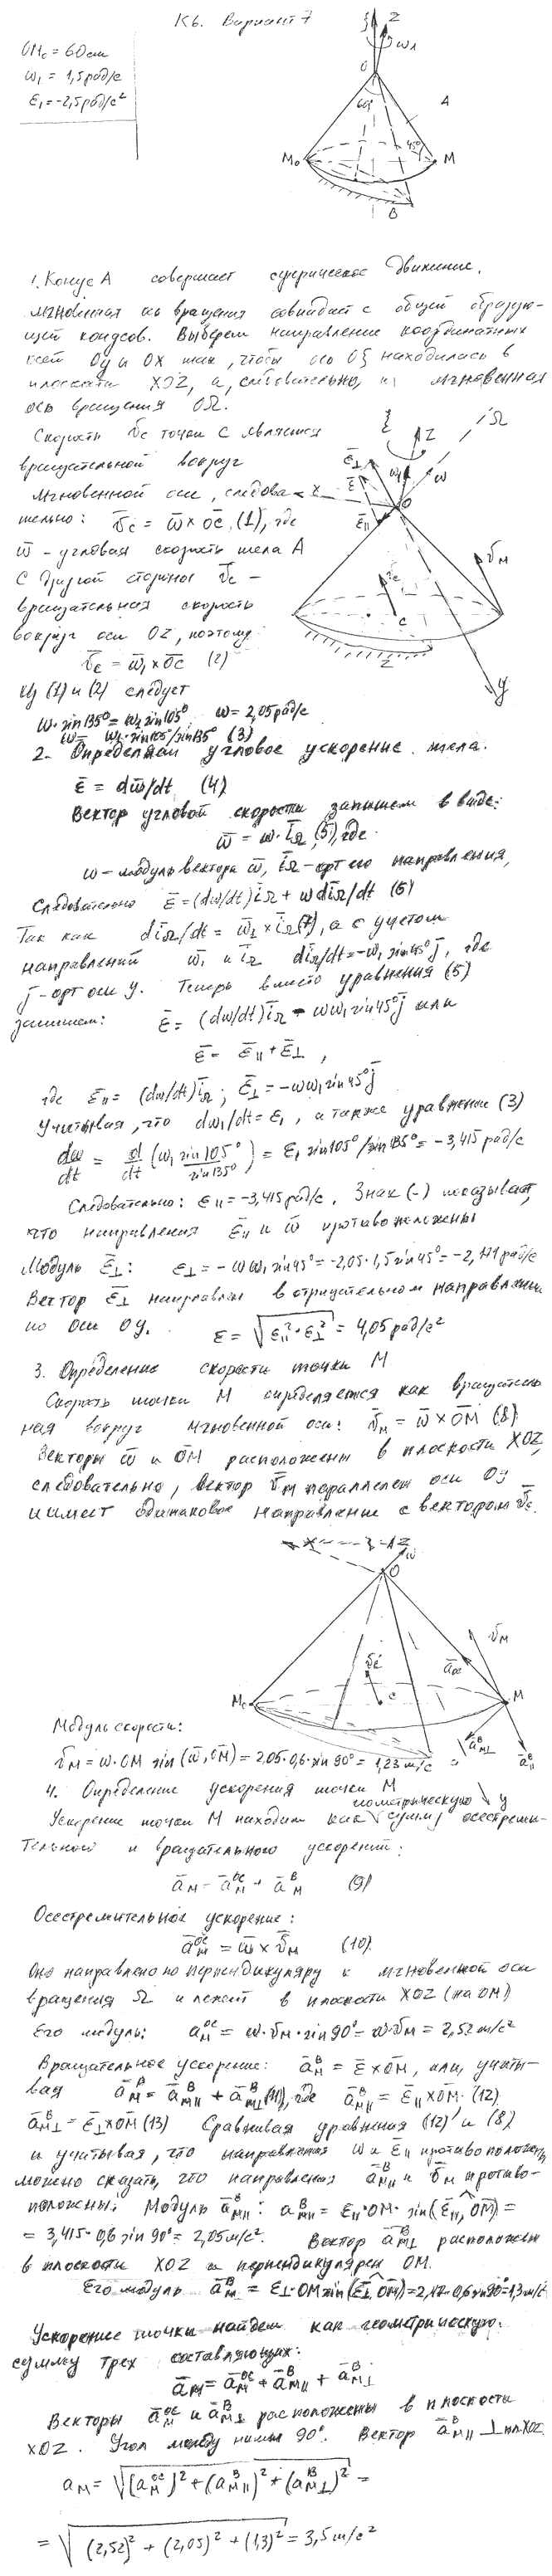 К6. Вариант 7
OM₀ = 60см
ω₁ = 1,5рад/с
ε₁ = -2,5рад/с²
ξ Z
ω₁
O
60°
A
45°
M₀
M
B
1. Конус А совершает сферическое движение.
Мгновенная ось вращения совпадает с общей образую-
щей конусов. Выберем направление координатных
осей Oy и OX так, чтобы ось Oξ находилась в
плоскости XOZ, а, следовательно, и мгновенная
ось вращения OΩ.
Скорость v̄c точки С является
вращательной вокруг
мгновенной оси, следова-
тельно: v̄c = ω̄ × OC̄, (1), где
ω̄ - угловая скорость тела А
С другой стороны v̄c -
вращательная скорость
вокруг оси OZ, поэтому:
v̄c = ω̄₁ × OC̄ (2)
Из (1) и (2) следует
ω·sin135° = ω₁ sin105° ω = 2,05рад/с
ω = ω₁·sin105°/sin135° (3)
ξ
Z
Ω
ε̄⊥
ε̄
ω₁
ω
x
O
ε̄||
v̄M
v̄c
C
Z
y
2. Определяем угловое ускорение тела.
ε̄ = dω̄/dt (4)
Вектор угловой скорости запишем в виде:
ω̄ = ω·īΩ, (5), где
ω - модуль вектора ω̄, īΩ - орт его направления,
Следовательно ε̄ = (dω/dt)īΩ + ωdīΩ/dt (6)
Так как dīΩ/dt = ω̄₁ × īΩ (7), а с учетом
направлений ω̄₁ и īΩ dīΩ/dt = -ω₁ sin45° j̄, где
j̄ - орт оси y. Теперь вместо уравнения (5)
запишем: ε̄ = (dω/dt)īΩ - ωω₁sin45°j̄ или
ε̄ = ε̄|| + ε̄⊥,
где ε̄|| = (dω/dt)īΩ; ε̄⊥ = -ωω₁sin45°j̄
Учитывая, что dω₁/dt = ε₁, а также уравнение (3)
dω/dt = d/dt (ω₁ sin105°/sin135°) = ε₁ sin105°/sin135° = -3,415 рад/с
Следовательно: ε|| = -3,415рад/с. Знак (-) показывает,
что направления ε̄|| и ω̄ противоположны
Модуль ε̄⊥: ε⊥ = -ωω₁sin45° = -2,05·1,5sin45° = -2,171рад/с
Вектор ε̄⊥ направлен в отрицательном направлении
по оси Oy. ε = √(ε||² + ε⊥²) = 4,05рад/с²
3. Определение скорости точки M
Скорость точки M определяется как вращатель
ная вокруг мгновенной оси: v̄M = ω̄ × OM̄ (8)
Векторы ω̄ и OM̄ расположены в плоскости XOZ,
следовательно, вектор v̄M параллелен оси Oy
и имеет одинаковое направление с вектором v̄c.
x ξ Z
ω
O
v̄M
v̄c
āос
M₀
C
M
āвM⊥
āв||
y
Модуль скорости:
vM = ω·OM sin(ω̄,OM̄) = 2,05·0,6·sin90° = 1,23 м/с
4. Определение ускорения точки M
геометрическую
Ускорение точки M находим как сумму осестреми-
тельного и вращательного ускорений:
āM = āMос + āMв (9)
Осестремительное ускорение:
āMос = ω̄ × v̄M (10)
Оно направлено по перпендикуляру к мгновенной оси
вращения Ω и лежит в плоскости XOZ (на OM)
Его модуль: aMос = ω·vM·sin90° = ω·vM = 2,52м/с²
Вращательное ускорение: āMв = ε̄ × OM̄, или, учиты-
вая āMв = āM||в + āM⊥в (11), где āM||в = ε̄|| × OM̄ (12)
āM⊥в = ε̄⊥ × OM̄ (13) Сравнивая уравнения (12) и (8)
и учитывая, что направления ω и ε̄|| противоположен,
можно сказать, что направления āM||в и v̄M противо-
положны. Модуль āM||в: aM||в = ε||·OM·sin(ε̄||,OM̄) =
= 3,415·0,6 sin90° = 2,05м/с². Вектор āM⊥в расположен
в плоскости XOZ и перпендикулярен OM.
Его модуль āM⊥в = ε⊥·OM sin(ε̄⊥,OM̄) = 2,17·0,6sin90° = 1,3м/с²
Ускорение точки найдем как геометрическую
сумму трех составляющих:
āM = āMос + āM||в + āM⊥в
Векторы āMос и āM⊥в расположены в плоскости
XOZ. Угол между ними 90°. Вектор āM||в ⊥ пл.XOZ
aM = √((aMос)² + (aM||в)² + (aM⊥в)²) =
= √((2,52)² + (2,05)² + (1,3)²) = 3,5м/с²